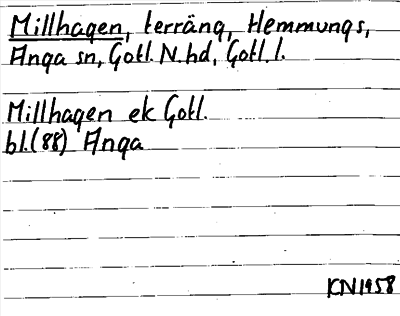 Millhagen, terräng, Hemmungs,
Anga sn, Gotl. N. hd, Gotl. l.
Millhagen ek Gotl.
bl. (88) Anga
KN1958